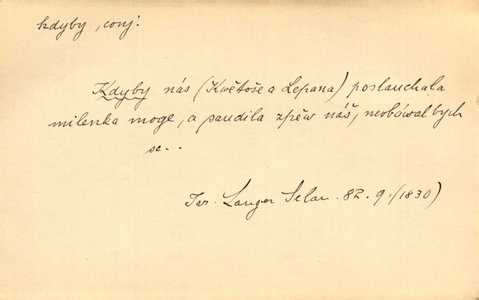 kdyby, conj.
Kdyby nás (Květoše a Lepana) poslauchala
milenka moge, a saudila zpěw náš, neobáwal bych
se..
Jar. Langer Selan. 82. 9. (1830)